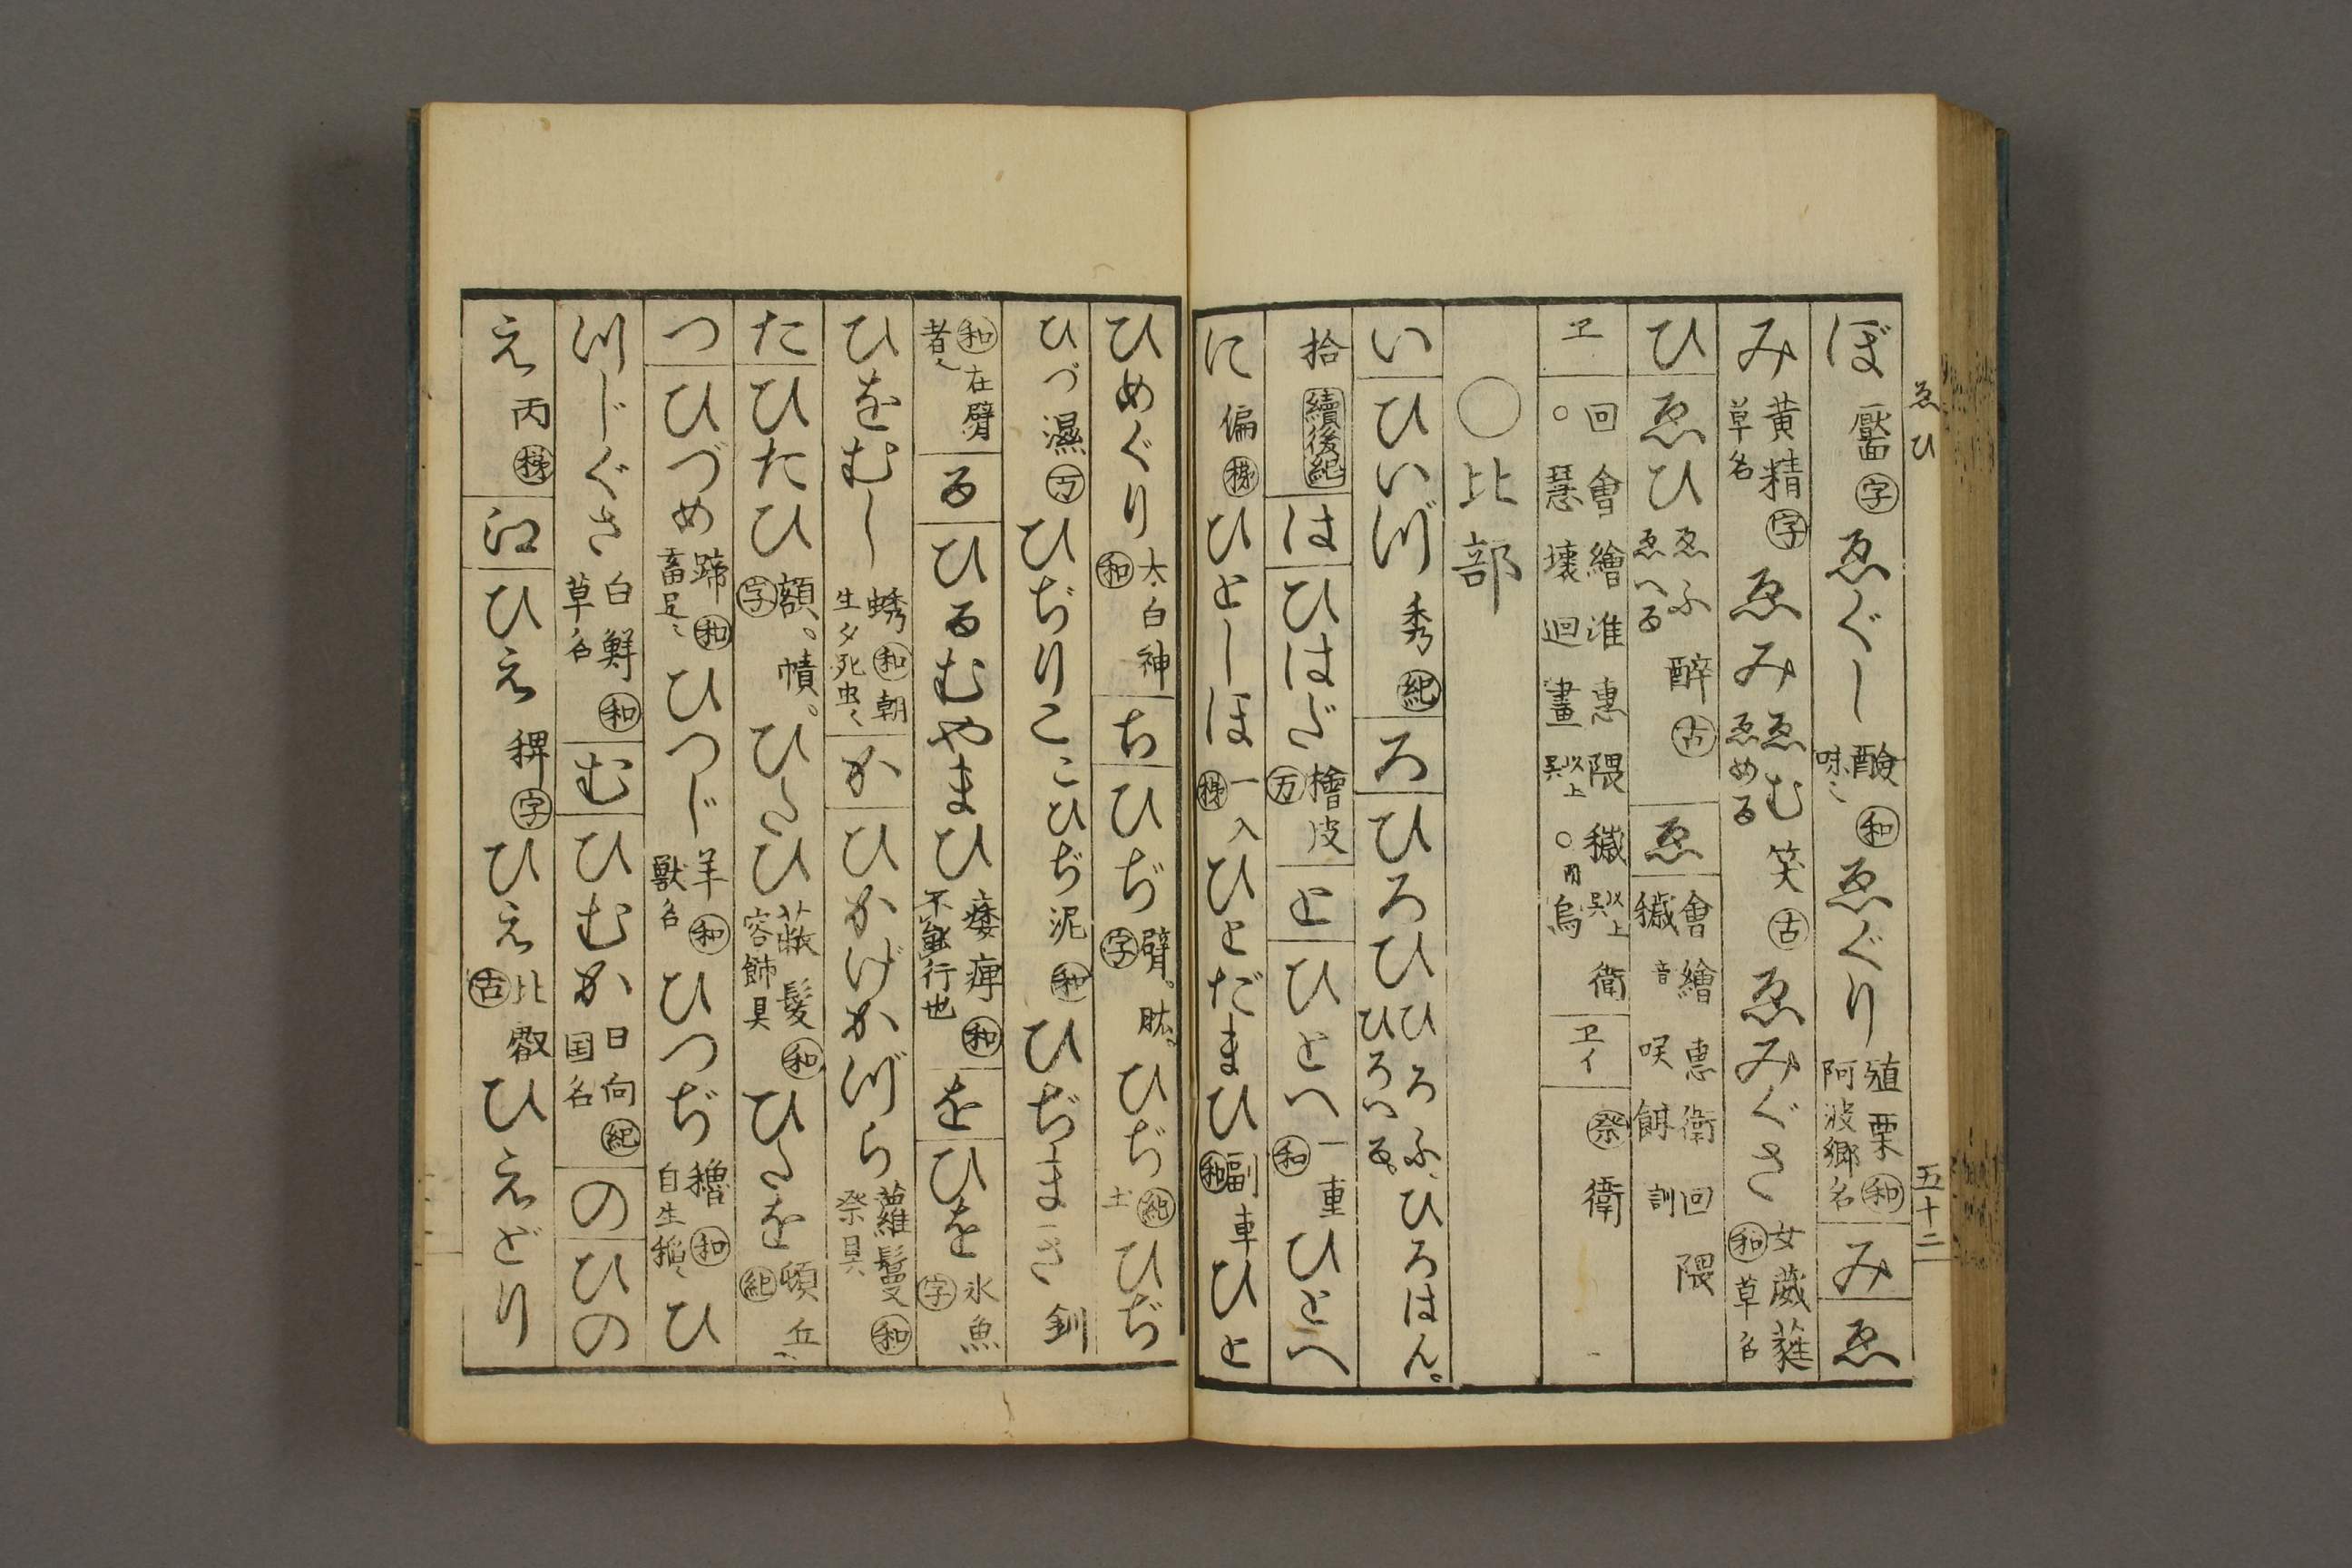 ゑひ
五十二
ぼ 靨 字 ゑぐし 醶 味〻 和 ゑぐり 殖栗 和 阿波郷名 み ゑ
み 黄精 字 草名 ゑみ ゑむ ゑめる 笑 古 ゑみぐさ 女葳蕤 和 草名
ひ ゑひ ゑふ ゑへる 醉 古 ゑ 會繪恵衛回隈 穢 音 咲餌 訓
ヱ 回會繪淮惠隈穢 以上呉 衛 ○慧壊廻畫 以上呉 ○用烏 ヱイ 祭 衛
○比部
い ひいづ 秀 紀 ろ ひろひ ひろふ ひろへる ひろはん。
拾 續後紀 は ひはだ 檜皮 万 と ひとへ 一重 和 ひとへ
に 偏 ひとしほ 一入 ひとだまひ 副車 和 ひと
ひめぐり 大白神 和 ち ひぢ 臂。肱。 字 ひぢ 紀 土 ひぢ
ひづ 濕 万 ひぢりこ こひぢ 泥 和 ひぢまき 釧
和 在臂者〻 る ひるむやまひ 痿痺 和 不能行也 を ひを 氷魚 字
ひをむし 蜏 和 朝生夕死虫〻 か ひかげかづら 蘿鬘 和 祭具
た ひたひ 額。幘。 字 ひたひ 蔽髪 和 容飾具 ひたを 頓丘 紀
つ ひづめ 蹄 和 畜足〻 ひつじ 羊 和 獣名 ひつぢ 穭 和 自生稲〻 ひ
つじぐさ 白鮮 和 草名 む ひむか 日向 紀 国名 の ひの
え 丙 江 ひえ 稗 字 ひえ 比叡 古 ひえどり